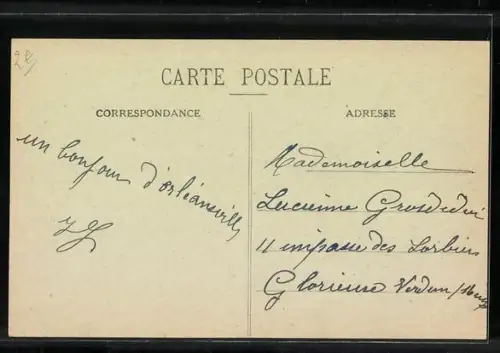 2e
CARTE POSTALE
CORRESPONDANCE
ADRESSE
un bonjour d'orléansville
Mademoiselle
Lucienne Grosdidier
11 impasse des Sorbiers
Glorieuse Verdun / Meuse